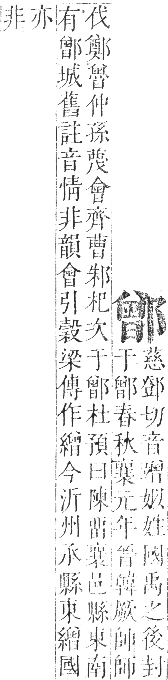 鄫
慈鄧切音贈姒姓國禹之後封
于鄫春秋襄元年晉韓厥帥師
伐鄭魯仲孫蔑會齊曹邾杞次于鄫杜預曰陳留襄邑縣東南
有鄫城舊註音情非韻會引穀梁傳作繒今沂州承縣東繒國
亦
非